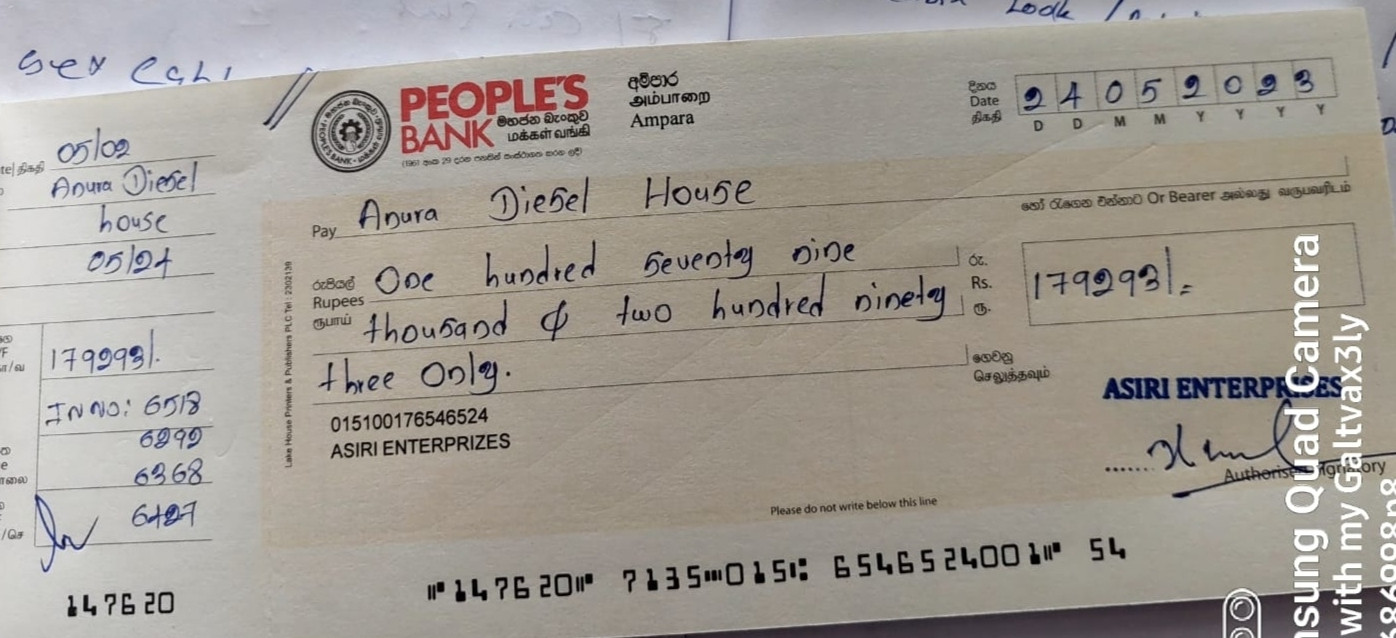 05/02
Anura Diesel
house
05/24
179293/.
IN NO: 6518
6292
6368
6427
147620
PEOPLE'S
BANK
මහජන බැංකුව
மக்கள் வங்கி
අම්පාර
அம்பாறை
Ampara
දිනය
Date
திகதி
24052023
D D M M Y Y Y Y
Pay Anura Diesel House
හෝ රැගෙන එන්නාට Or Bearer அல்லது வருபவரிடம்
රුපියල්
Rupees
ரூபாய்
One hundred seventy nine
thousand & two hundred ninety
three Only.
රු.
Rs.
ரூ.
179293/=
ගෙවනු
செலுத்தவும்
015100176546524
ASIRI ENTERPRIZES
ASIRI ENTERPRISES
Authorised Signatory
Please do not write below this line
Lake House Printers & Publishers PLC Tel : 2302139
⑈147620⑈ 7135⑉015⑆ 6546524001⑈ 54
sung Quad Camera
with my Galtvax3ly